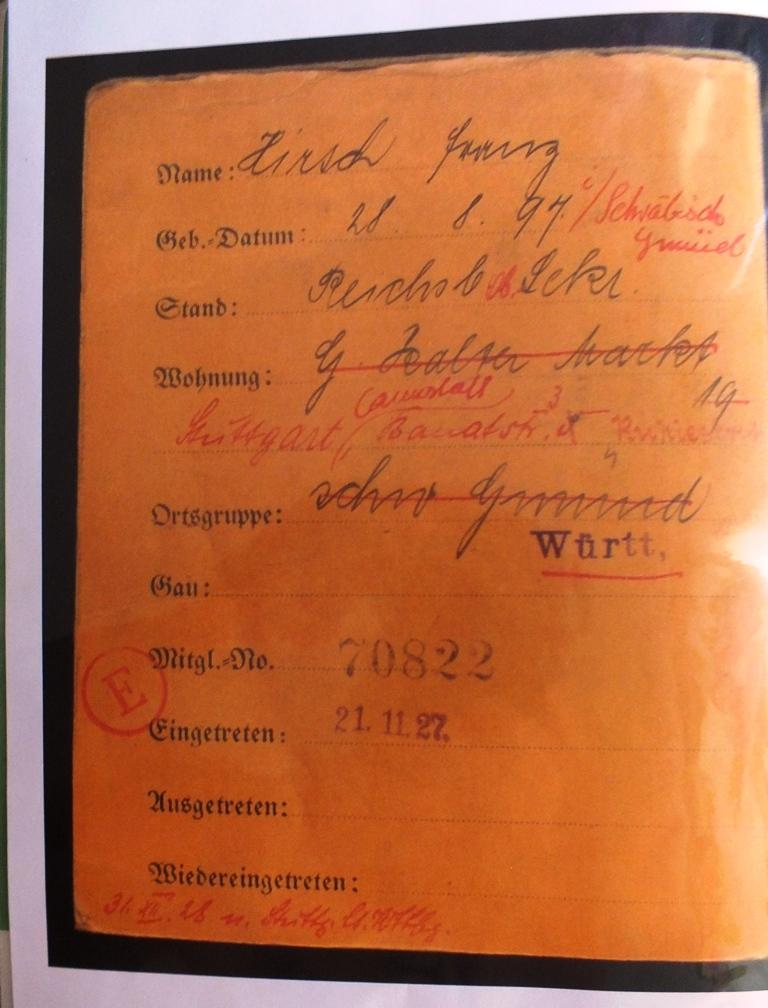 Name: Hirsch Franz
Geb.-Datum: 28. 8. 97. i/Schwäbisch
Gmünd
Stand: Reichsb. Sekr.
Wohnung: G. Kalter Markt
19
Cannstatt
Stuttgart 3
Ortsgruppe: schw Gmünd
Württ,
Gau:
Mitgl.-No. 70822
E
Eingetreten: 21. 11. 27.
Ausgetreten:
Wiedereingetreten:
31. XII. 28 n. Stuttg.